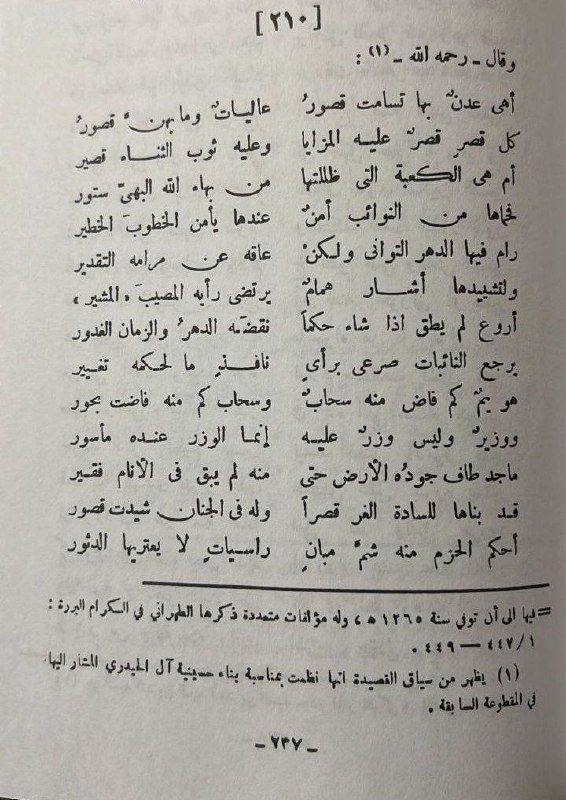 [٢١٠]
وقال ـ رحمه الله ـ (١) :
أهى عدنٌ بها تسامت قصورُ عالياتٌ وما بهنَّ قصورُ
كل قصرٍ قصرٌ عليه المزايا وعليه ثوب الثناء قصير
أم هى الكعبة التى ظللتها من بهاء الله البهىّ ستور
فحماها من النوائب أمنٌ عندها يأمن الخطوبَ الخطير
رام فيها الدهر التوانى ولكنْ عاقه عن مرامه التقدير
ولتشييدها أشار همامٌ يرتضى رأيه المصيبَ «المشير»
أروع لم يطق اذا شاء حكماً نقضَه الدهرُ والزمان الغدور
يرجع النائبات صرعى برأىٍ نافذٍ ما لحكمه تغيير
هو يمٌ كم فاض منه سحابٌ وسحاب كم منه فاضت بحور
ووزيرٌ وليس وزرٌ عليه إنما الوزر عنده مأسور
ماجد طاف جودُه الأرض حتى منه لم يبق فى الأنام فقير
قد بناها للسادة الغر قصراً وله فى الجنان شيدت قصور
أحكم الحزم منه شمَّ مبانٍ راسياتٍ لا يعتريها الدثور
= فيها الى أن توفي سنة ١٢٦٥ هـ ، وله مؤلفات متعددة ذكرها الطهراني في الكرام البررة :
١/ ٤٤٧ — ٤٤٩ .
(١) يظهر من سياق القصيدة انها نظمت بمناسبة بناء حسينية آل الحيدري المشار اليها
في المقطوعة السابقة .
ـ ٢٣٧ ـ